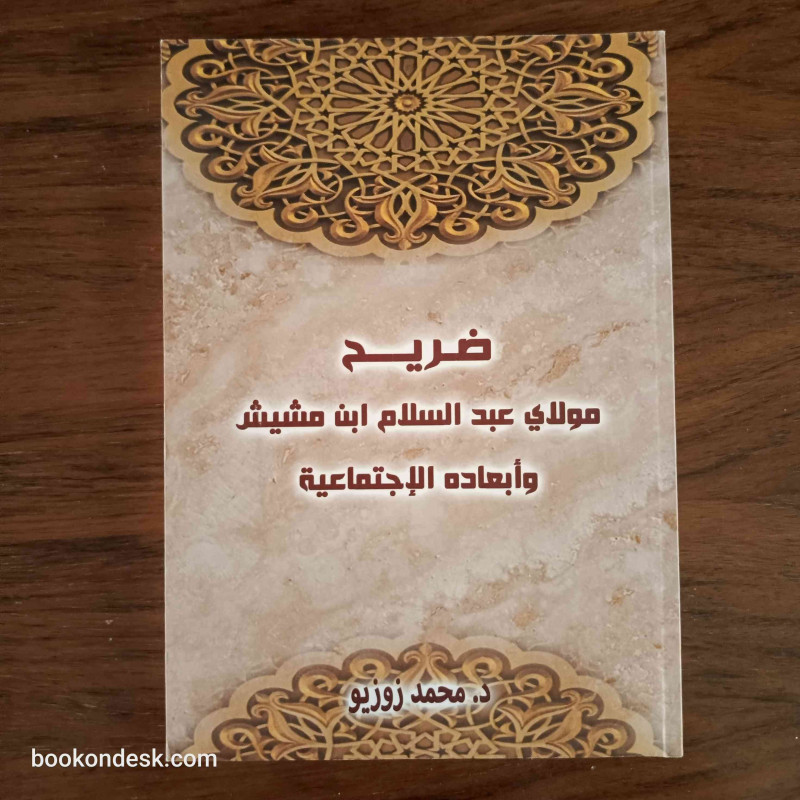 ضريح
مولاي عبد السلام ابن مشيش
وأبعاده الإجتماعية
د. محمد زوزيو
bookondesk.com